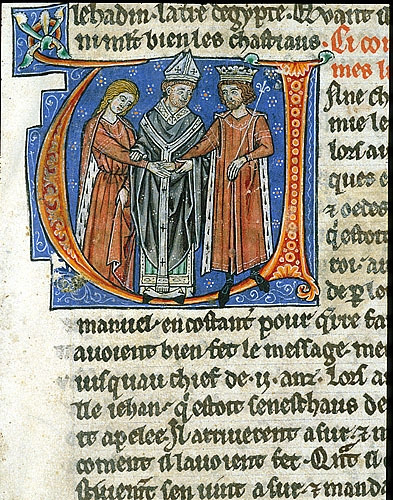 lehadin. la tre degypte. Quant il
ni mst bien les chastiaus. Ci com
mes l
fine ch
mie le
lors au
ques e
⁊ oedes
q̃ estoit
roi. a
de p lo
manuel. en costant pour q̃rre fa
auoient bien fet le message. me
iusquau chief de .ij. anz. Lors a
tle iehan. q̃ estoit seneschaus de
rt apelee. Il arriuerent a sur. ⁊ m
coment il lauoient fet. Qñt li
sen uint a sur. ⁊ manda